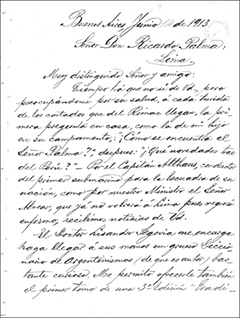 Buenos Aires Junio de 1913
Señor Don Ricardo Palma,
Lima
Muy distinguido Señor y amigo:
Tiempo há que no sé de Vd., pero
preocupándome por su salud, á cada turista
de los contados que del Rimac llegan, la pri-
mera pregunta en casa, como la de mi hijo
en su campamento: ¿Cómo se encuentra el
Señor Palma? ¿despues: ¿Qué novedades hay
del Perú? - Por el Capitán Althaus, conductor
del primer submarino para la Escuadra de su
nación, como por nuestro Ministro el Señor
que ya no volverá á Lima pues regresó
enfermo, recibimos noticias de Vd.
El Doctor Lisandro Segovia me encarga
haga llegar á sus manos un grueso Diccio-
nario de Argentinismos (de que es autor), bas-
tante curioso. Me permito ofrecerle tambien
el primer tomo de una 3ª Edición "Tradi-